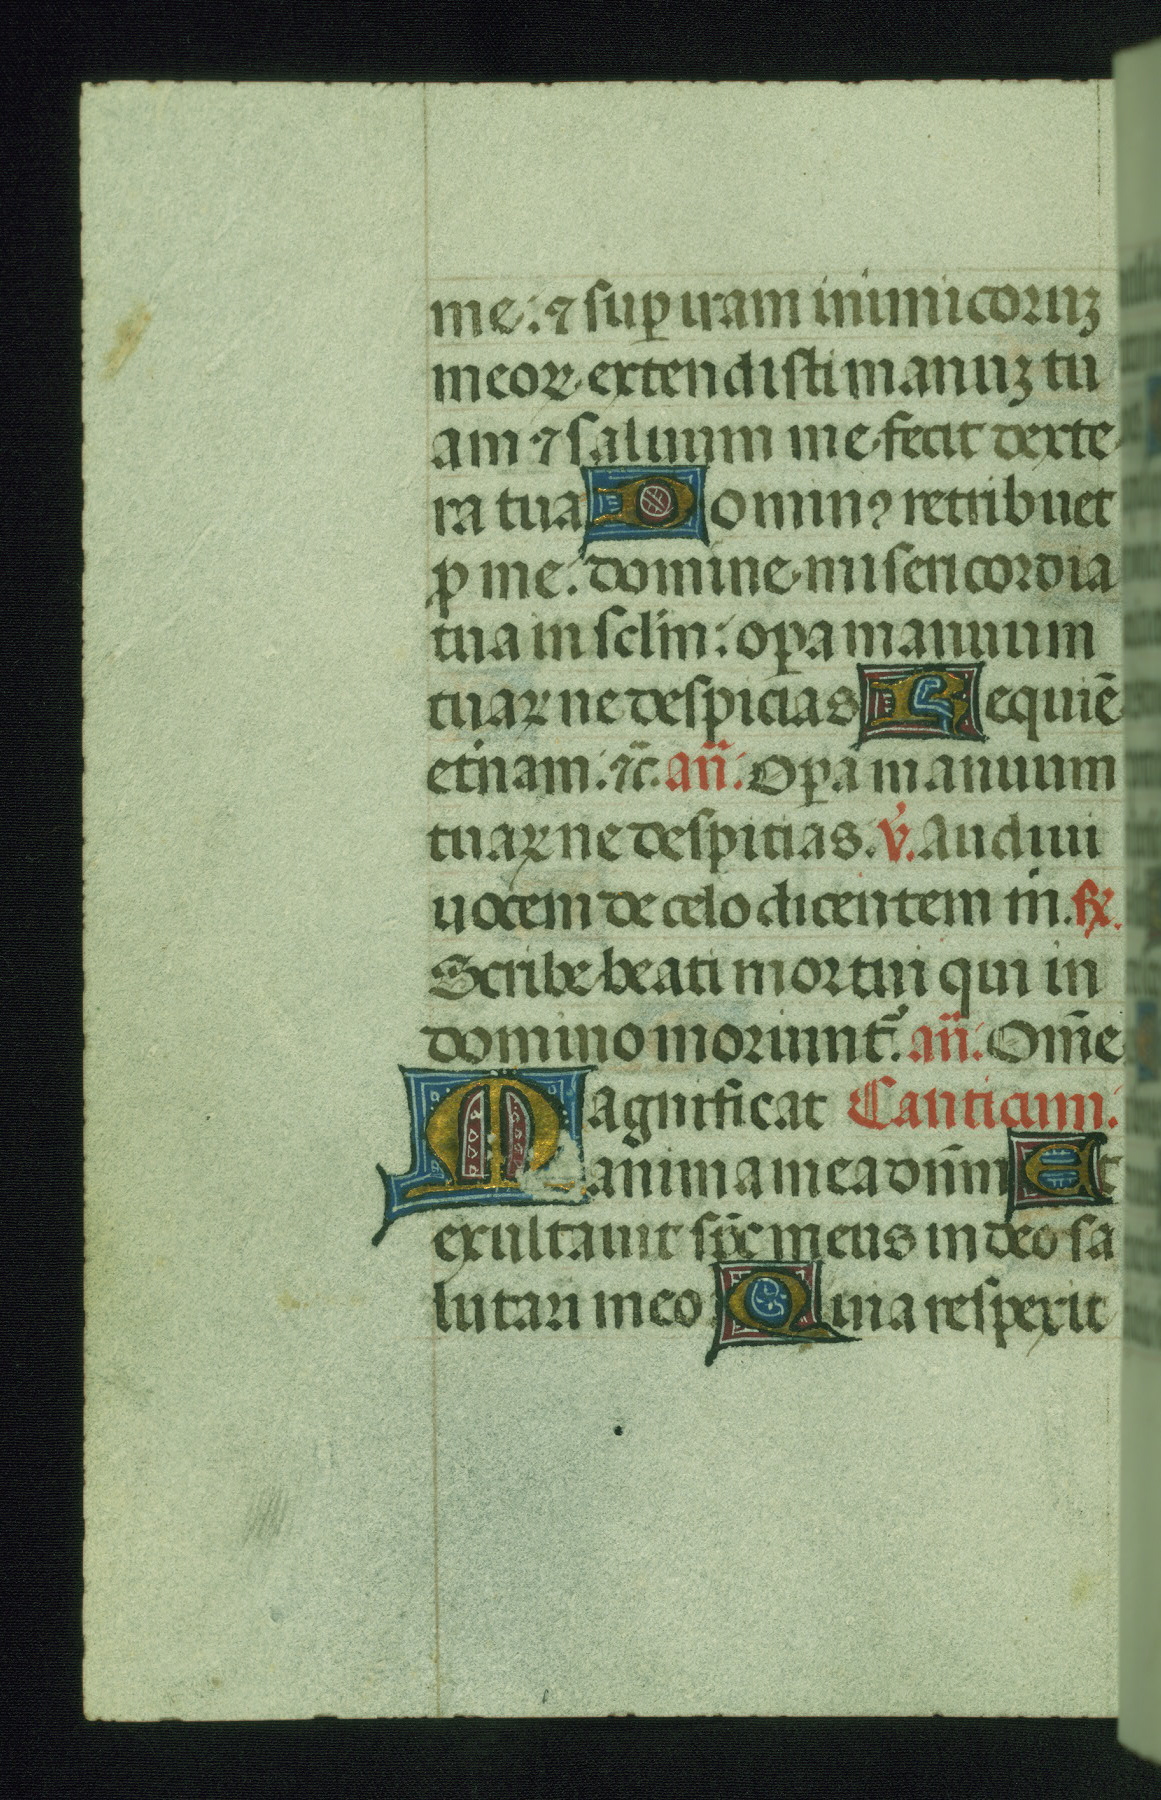 me: ⁊ suꝑ iram inimicoruꝫ
meoꝝ extendisti manuꝫ tu
am ⁊ saluum me fecit dexte
ra tua Dominꝰ retribuet
ꝓ me: domine misericordia
tua in sclm̄: oꝑa manuum
tuaꝝ ne despicias Requiē
et̓nam. ⁊c̄. an̄. Oꝑa manuum
tuaꝝ ne despicias. v̓. Audiui
uocem de celo dicentem m̓. ꝶ.
Scribe beati mortui qui in
domino moriunt᷑. an̄. Om̄e
Magnificat Canticum.
anima mea dn̄m Et
exultauit sp̄c meus in deo sa
lutari meo Quia respexit